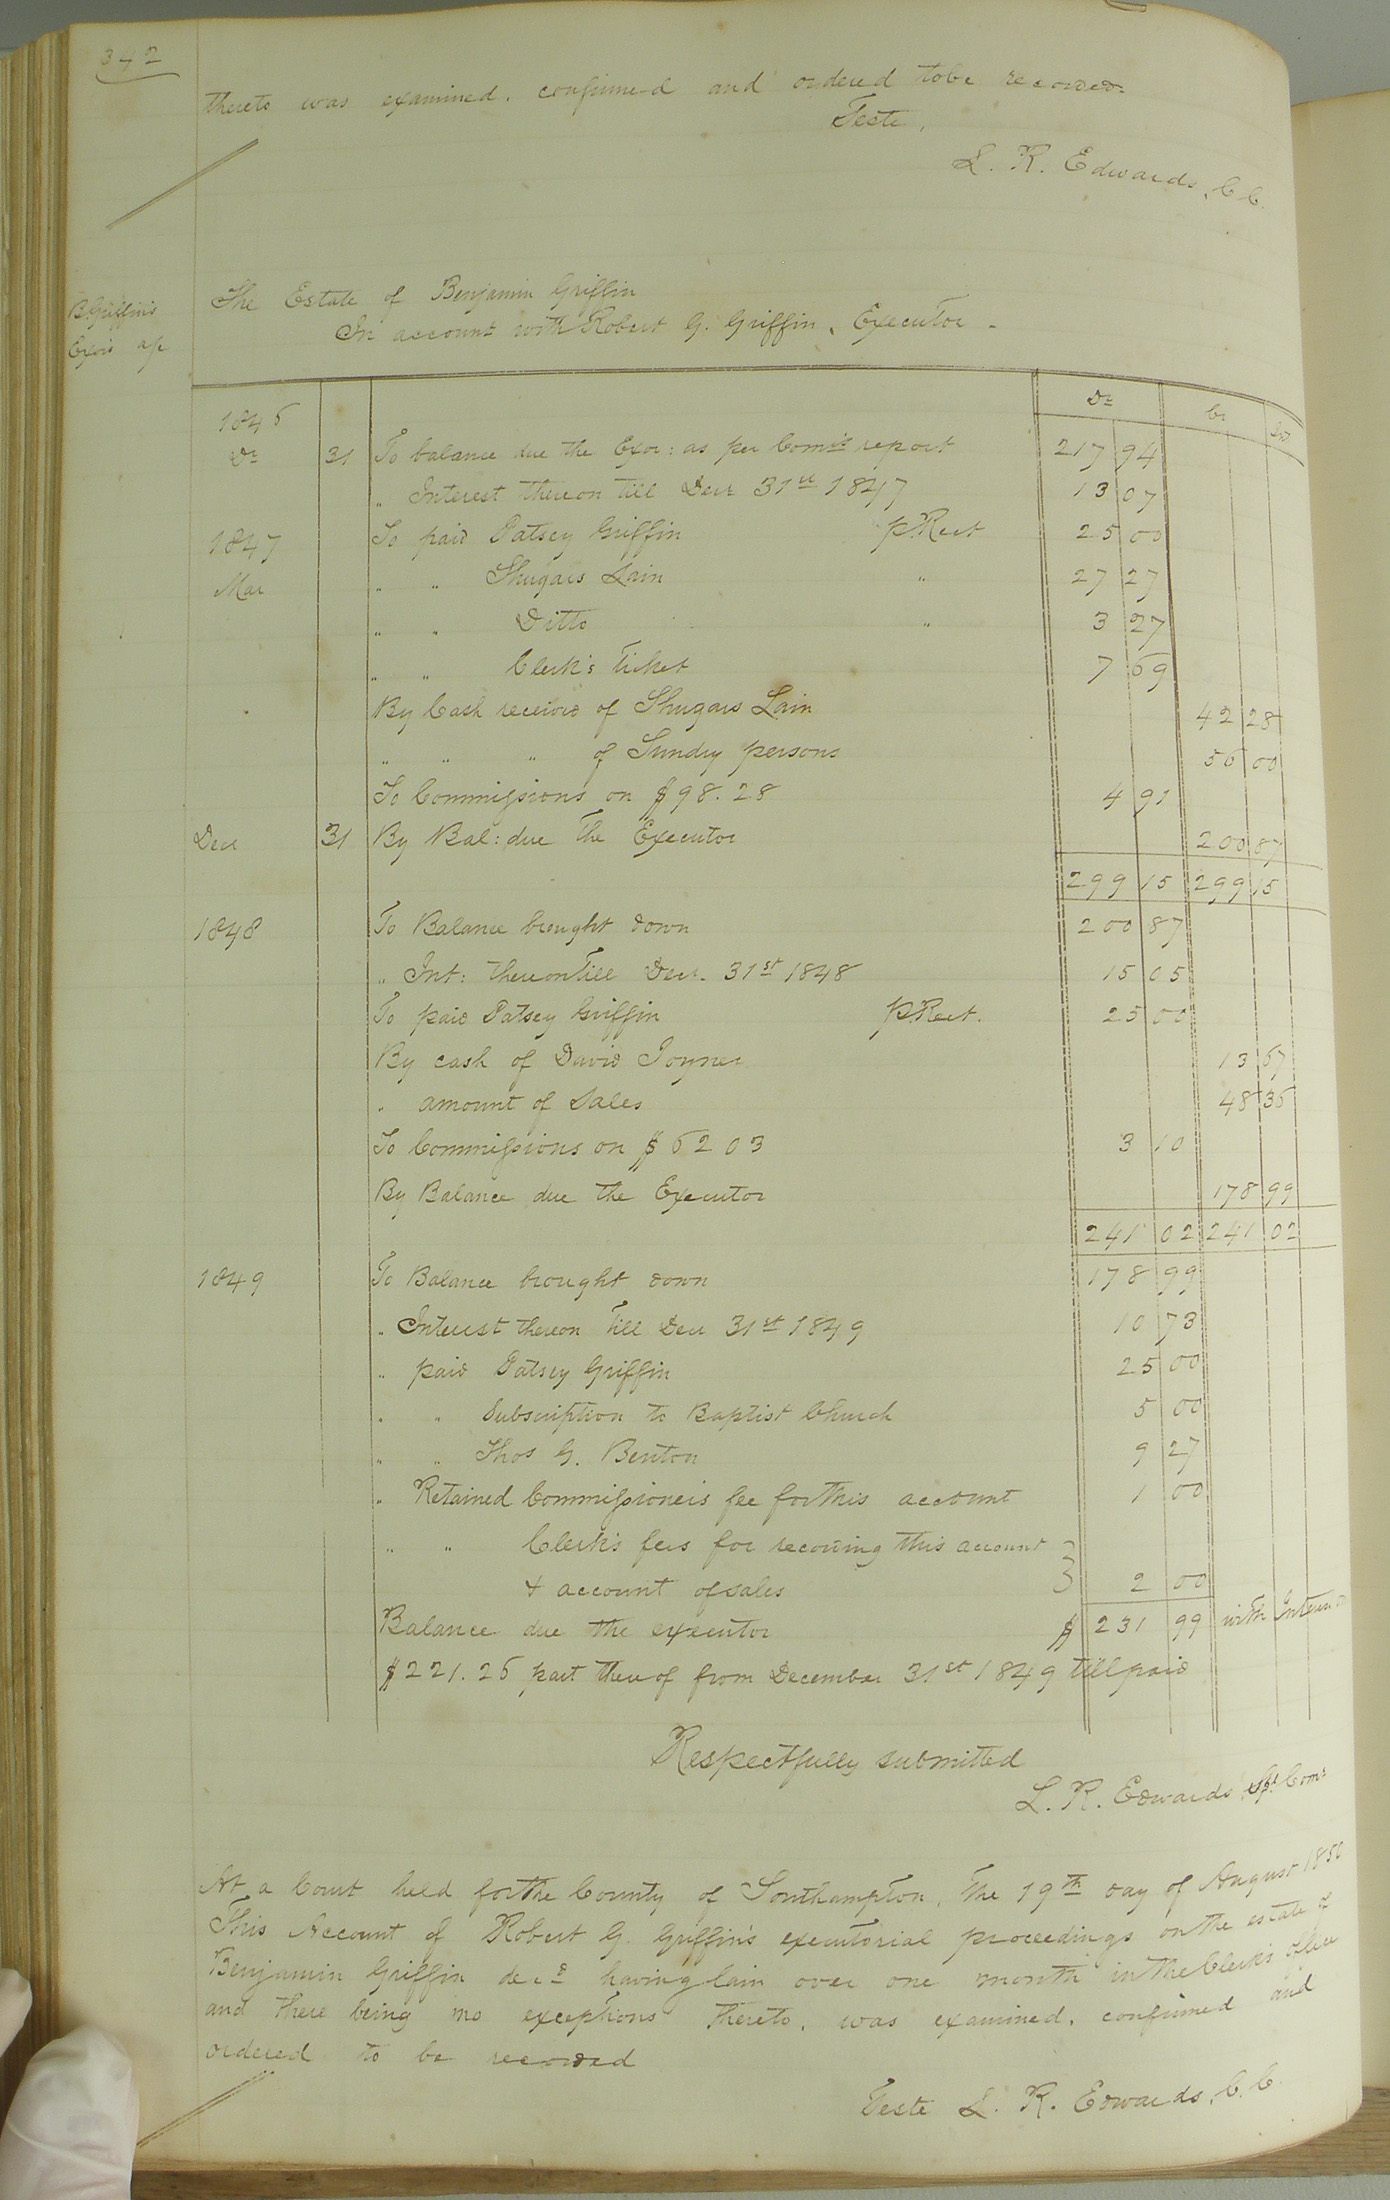 342
thereto was examined, confirmed and ordered to be recorded.
Teste,
L. R. Edwards, C. C.
B Griffin's
Exors a/c
The Estate of Benjamin Griffin
In account with Robert G. Griffin, Executor -
Dr Cr
1846
Dr 31 To balance due the Exor: as per Comrs report 217 94
" Interest thereon till Decr 31st 1847 13 07
1847 To paid Patsey Griffin p.Rect 25 00
Mar " " Shugars Lain " 27 27
" " Ditto " 3 27
" " Clerk's Ticket 7 69
By Cash received of Shugars Lain 42 28
" " " of Sundry persons 56 00
To Commissions on $98.28 4 91
Decr 31 By Bal: due the Executor 200 87
299 15 299 15
1848 To Balance brought down 200 87
" Int: thereon till Decr. 31st 1848 15 05
To paid Patsey Griffin p.Rect. 25 00
By cash of David Joyner 13 67
" amount of sales 48 36
To Commissions on $62 03 3 10
By Balance due the Executor 178 99
241 02 241 02
1849 To Balance brought down 178 99
" Interest thereon till Decr 31st 1849 10 73
" paid Patsey Griffin 25 00
" " Subscription to Baptist Church 5 00
" " Thos G. Benton 9 27
" Retained Commissioners fee for this account 1 00
" " Clerk's fees for recording this account
& account of sales 2 00
Balance due the executor $ 231 99 with Interest on
$221.26 part thereof from December 31st 1849 till paid
Respectfully submitted
L. R. Edwards Spl. Comr
At a Court held for the County of Southampton, the 19th day of August 1850
This Account of Robert G. Griffin's executorial proceedings on the estate of
Benjamin Griffin decd having lain over one month in the Clerk's office
and there being no exceptions thereto, was examined, confirmed and
ordered to be recorded
Teste L. R. Edwards, C. C.